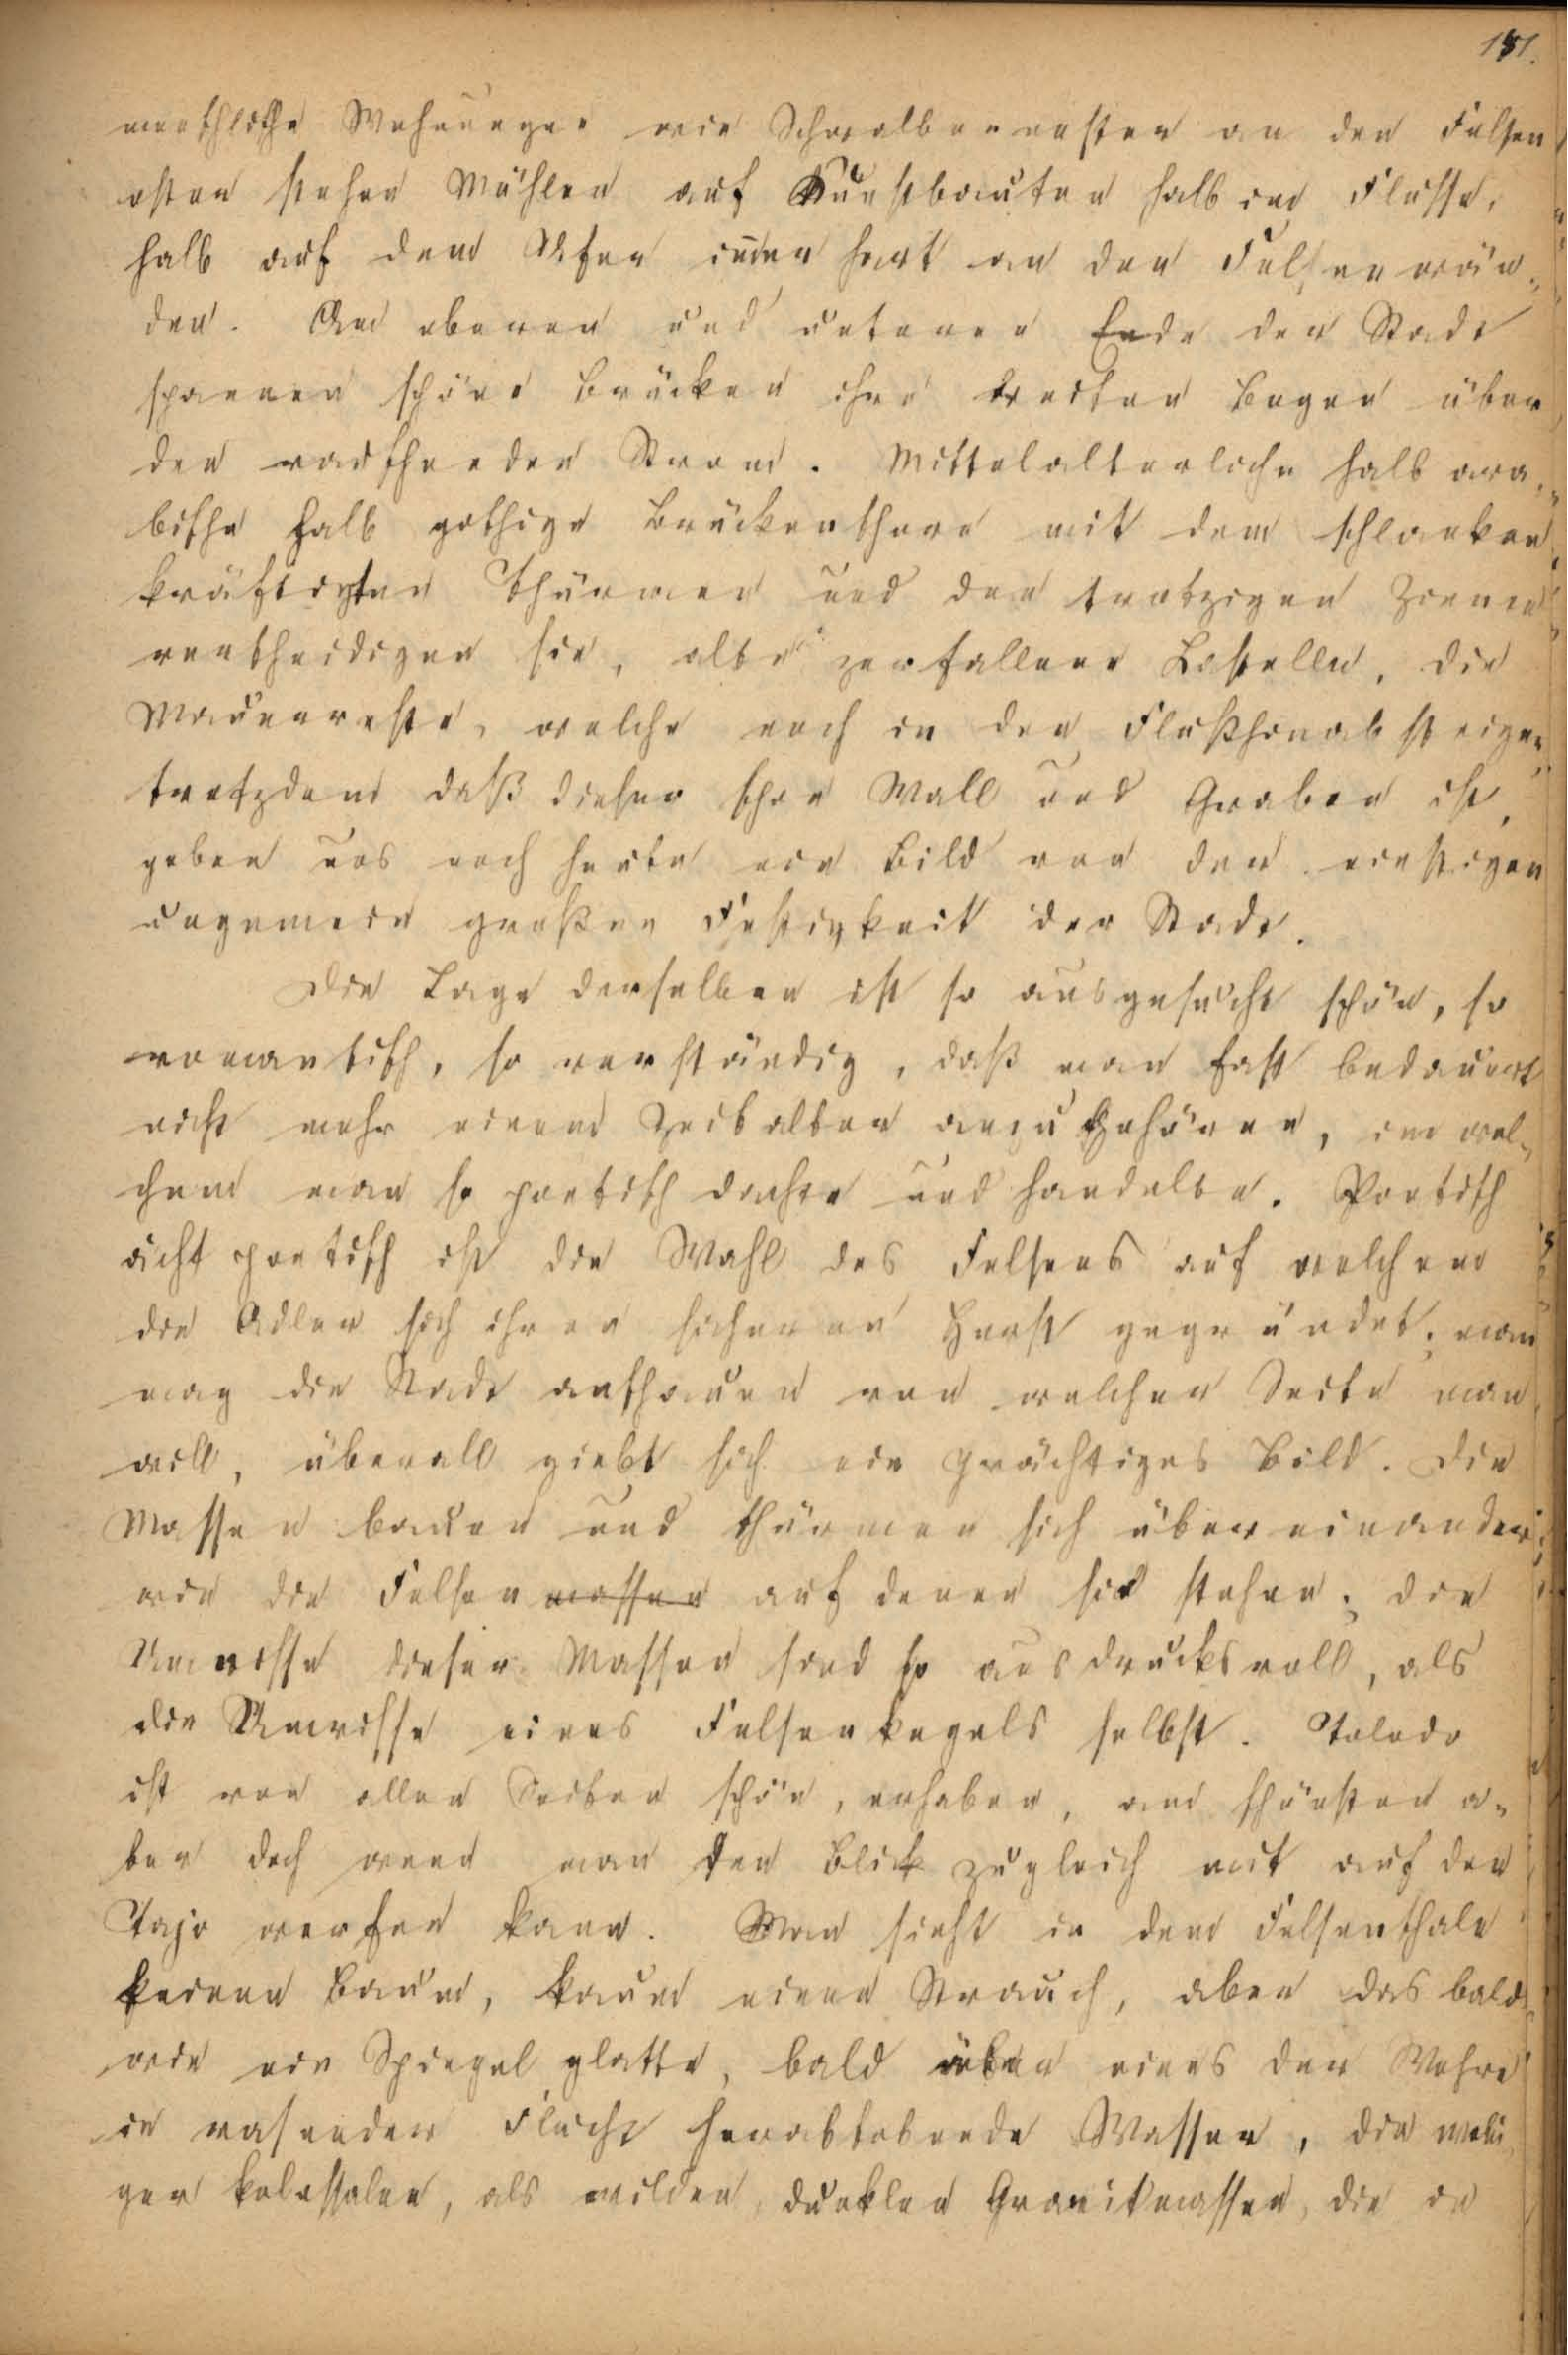 181.
menschliche Wohnungen wie Schwalbennester an den Felsen
osten stehen Mühlen auf Kunstbauten halb im Flusse,
halb auf dem Ufer immer hart an den Felsenwän-
den. Am oberen und unteren Ende der Stadt
spannen schöne Brücken ihre breiten Bogen über
den rauschenden Strom. Mittelalterliche halb ara-
bische halb gothige Brückenthore mit dem schlanken
kräftigten Thürmen und den trotzigen Zinnen
vertheidigen sie, alte zerfallene Castelle, die
Mauerreste, welche noch in den Fluß hinabsteigen
trotzdem daß dieser schon Wall und Graben ist,
geben uns noch heute ein Bild von der einstigen
ungemein großen Festigkeit der Stadt.
Die Lage derselben ist so ausgesucht schön, so
romantisch, so verständig, daß man fast bedauert
nicht mehr einem Zeitalter anzugehören, in wel-
chem man so poetisch dachte und handelte. Poetisch
ächt poetisch ist die Wahl des Felsens auf welchem
die Adler sich ihren sicheren Horst gegründet; man
mag die Stadt anschauen von welcher Seite man
will, überall giebt sich ein prächtiges Bild. Die
Massen bauen und thürmen sich über einander
wie die Felsenmassen auf denen sie stehen; die
Umrisse dieser Massen sind so ausdrucksvoll, als
die Umrisse eines Felsenkegels selbst. Toledo
ist von allen Seiten schön, erhaben, am schönsten a-
ber doch wenn man den Blick zugleich mit auf den
Tajo werfen kann. Man sieht in dem Felsenthale
keinen Baum, kaum einen Strauch, aber das bald
wie ein Spiegel glatte, bald über eines der Wehre
in rasender Flucht herabtobende Wasser, die weni
ger kolossalen, als wilden, dunklen Granitmassen, die in